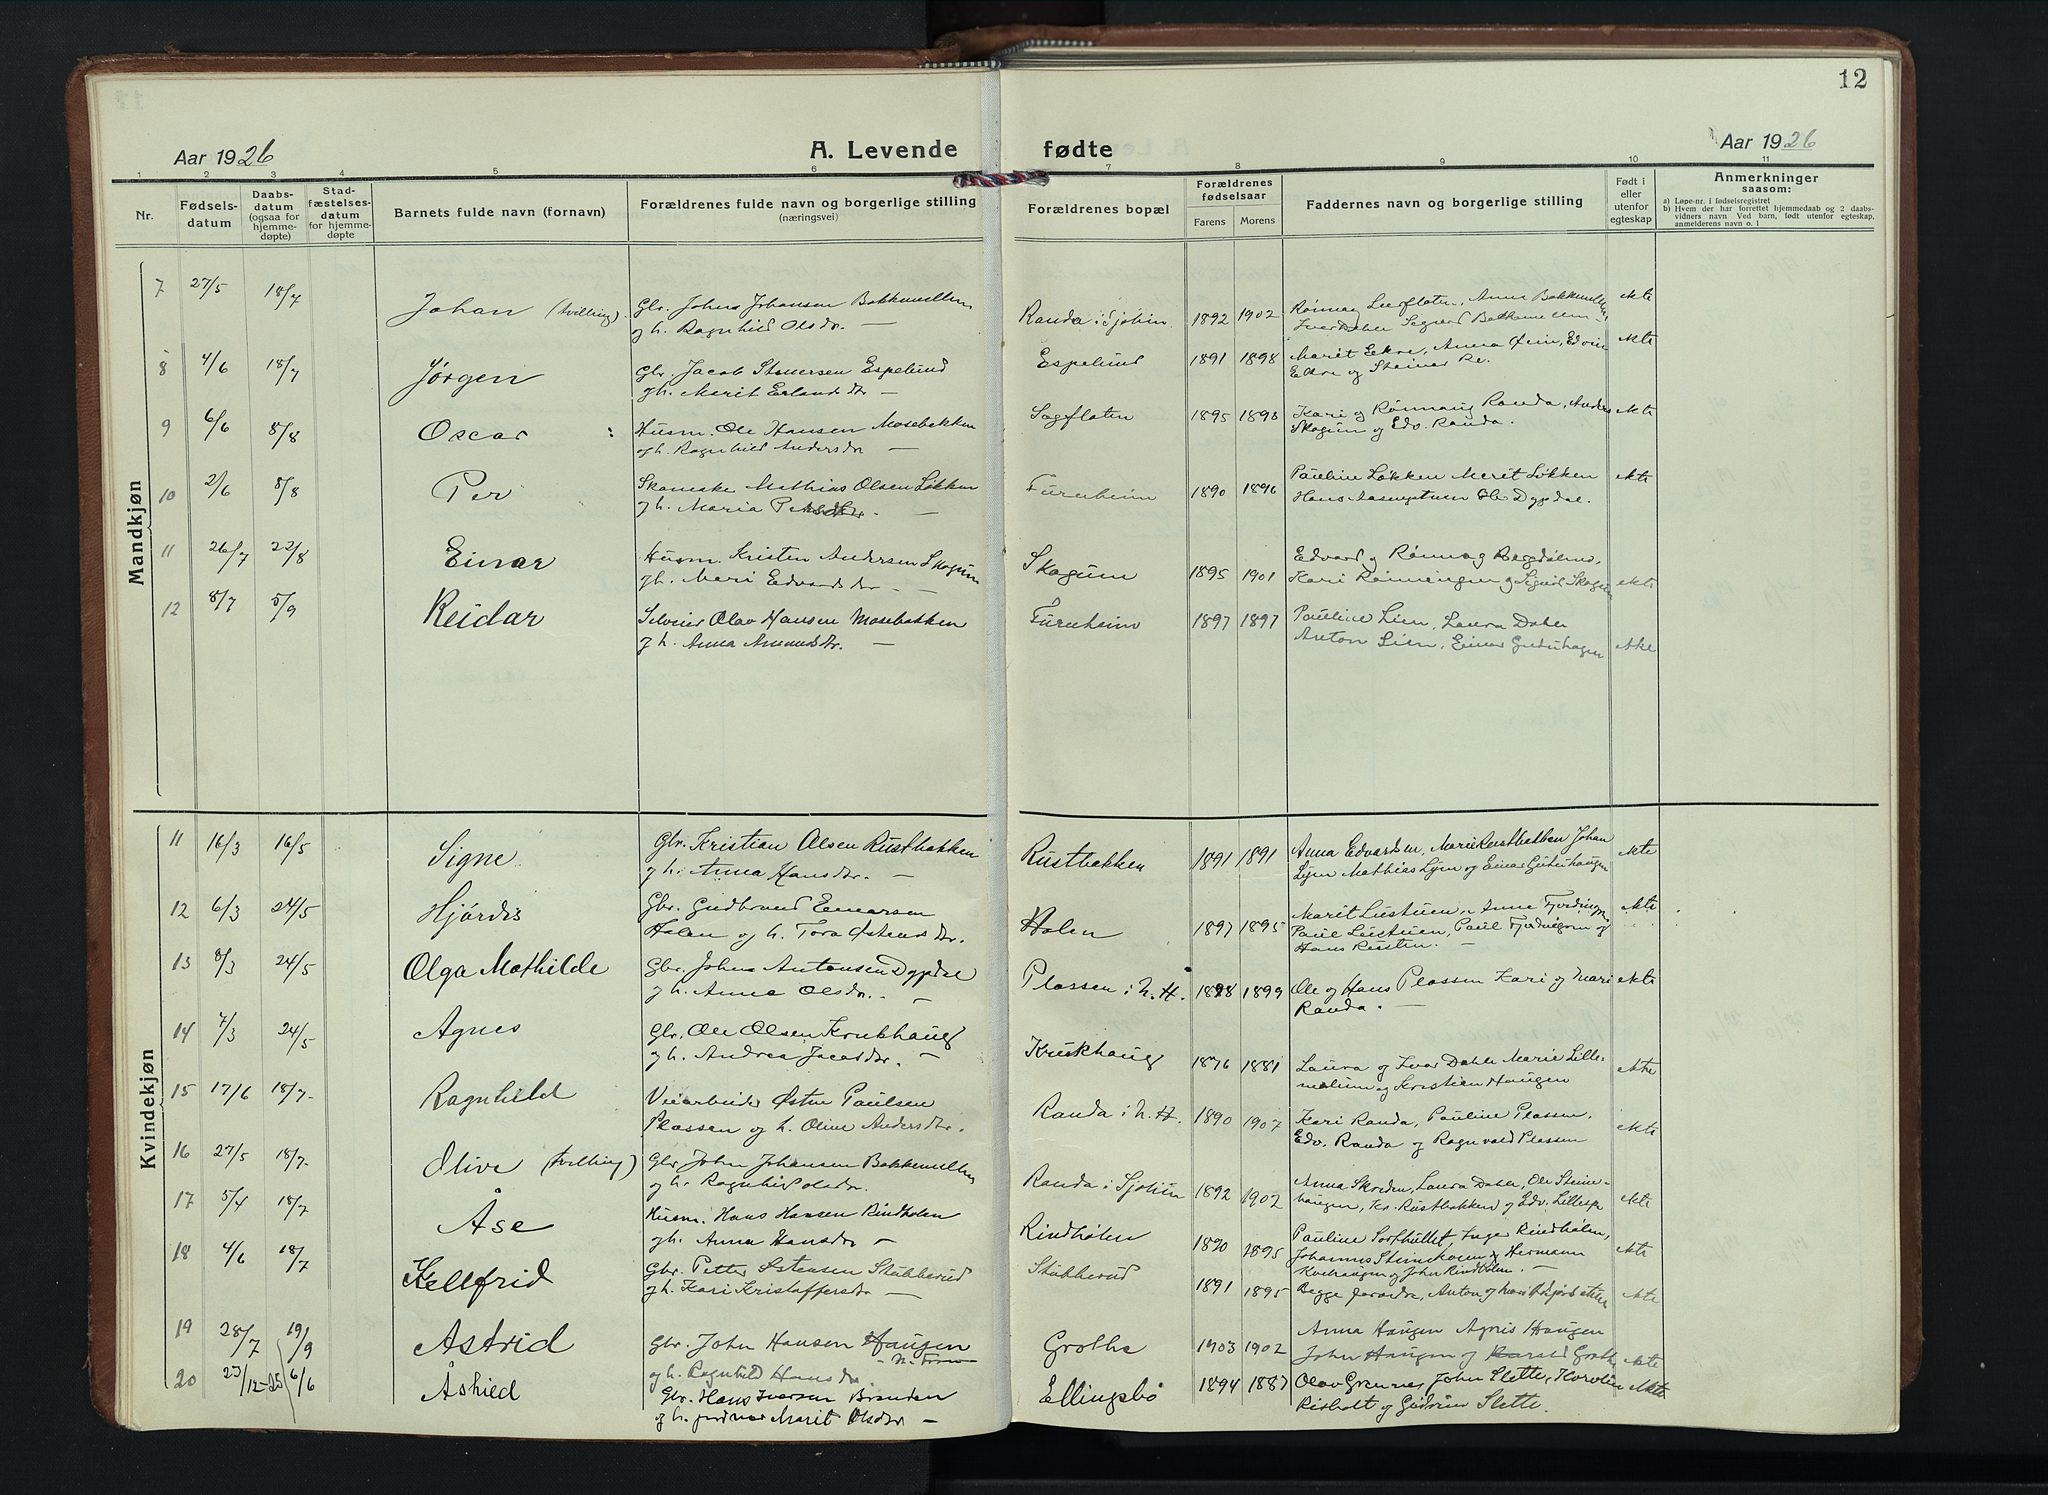 12
Aar 1926
A. Levende
fødte
Aar 1926
1 2 3 4 5 6 7 8 9 10 11
Nr.
Fødselsdatum
Daabsdatum (ogsaa for hjemmedøpte)
Stadfæstelsesdatum for hjemmedøpte
Barnets fulde navn (fornavn)
Forældrenes fulde navn og borgerlige stilling (næringsvei)
Forældrenes bopæl
Forældrenes fødselsaar
Farens Morens
Faddernes navn og borgerlige stilling
Født i eller utenfor egteskap
Anmerkninger saasom:
a) Løpe-nr. i fødselsregistret
b) Hvem der har forrettet hjemmedaab og 2 daabsvidners navn Ved barn, født utenfor egteskap, anmelderens navn o. l
Mandkjøn
7 27/5 18/7 Johan (tvilling) Gbr. Johan Johansen Bakkemellem Randa i Sjohim 1892 1902 Rønnog Leerfloten, Anne Bakkemellem Ekte
og h. Ragnhild Olsdr. — Iver Dahle Bakkemellem
8 4/6 18/7 Jørgen Gbr. Jacob Espelund Espelund 1891 1898 Marit Ekre, Anna Edvin Ekte
og h. Marit Erlandsdtr — Ekre og Steinar Re.
9 6/6 8/8 Oscar : Husm. Ole Hansen Mosebakken Sagfloten 1895 1898 Kari og Rønnaug Randa, Anders Ekte
og h. Ragnhild Andersdtr — Skogum og Edv. Randa.
10 2/6 8/8 Per Mathias Olsen Løkken Furuheim 1890 1896 Pauline Løkken Merit Løkken Ekte
og h. Maria — Hans Dypdal.
11 26/7 22/8 Einar Husm. Kristen Andersen Skogum Skogum 1895 1901 Edvard og Rønnog
og h. Mari Edvardsdtr — Kari Rønningen og Sigrid Skogum Ekte
12 8/7 5/9 Reidar Olav Hansen Mosebakken Furuheim 1897 1897 Pauline Lien, Laura Dahle
og h. Anna Amundsdtr. — Anton Lien, Einar Guteruhagen Ekte
Kvindekjøn
11 16/3 16/5 Signe Gbr. Kristian Olsen Rustbakken Rustbakken 1891 1891 Anna Edvardsen, Marie Rustbakken Johan Ekte
og h. Anna Hansdtr. — Lyen Mathias Lyen og Einar
12 6/3 24/5 Hjørdis Gbr. Gudbrand Einarsen Holen 1897 1895 Marit Lustuen, Anne Ekte
Holen og h. Tora Østensdtr. Paul Lustuen, Paul og
Hans Rusten. —
13 8/3 24/5 Olga Mathilde Gbr. Johan Antonsen Dypdal Plassen i N. H. 1898 1899 Ole og Hans Plassen Kari og Mari Ekte
og h. Anna Olsdtr. — Randa. —
14 7/3 24/5 Agnes Gbr. Ole Olsen Krukhaug Krukhaug 1876 1881 Laura og Ivar Dahle Marie Lille- Ekte
og h. Andrea Jacobsdtr. — og Kristian Haugen
15 17/6 18/7 Ragnhild Veiarbeider Østen Paulsen Randa i N. H. 1890 1907 Kari Randa, Pauline Plassen. Ekte
Plassen og h. Oline Andersdtr. Edv. Randa og Ragnvald Plassen
16 27/5 18/7 Olive (tvilling) Gbr. John Johansen Bakkemellem Randa i Sjohim 1892 1902 Anna Skreden, Laura Dahle, Ole Steine- Ekte
og h. Ragnhild Olsdr. haugen, Kr. Rustbakken og Edv.
17 5/4 18/7 Åse Husm. Hans Hansen Rindholen Rindhølen 1890 1895 Pauline Inger Rindhølen, Ekte
og h. Anna Hansdtr — Johannes og Hermann
og John Rindhølen. —
18 4/6 18/7 Kellfrid Gbr. Petter Østensen Stubberud Stubberud 1891 1895 Begge forældre, Anton og Ekte
og h. Kari Kristoffersdtr —
19 28/7 19/9 Astrid Gbr. John Hansen Haugen Grothe 1903 1902 Anna Haugen Agnis Haugen
og h. Ragnhild Hansdtr John Haugen og Harald Grothe Ekte
20 23/12-25 6/6 Åshild Gbr. Hans Iversen Brenden Ellingsbø 1894 1887 Olav Grennes, John Slette, Karoline Ekte
og h. Marit Olsdtr — og Gudrun Slette.